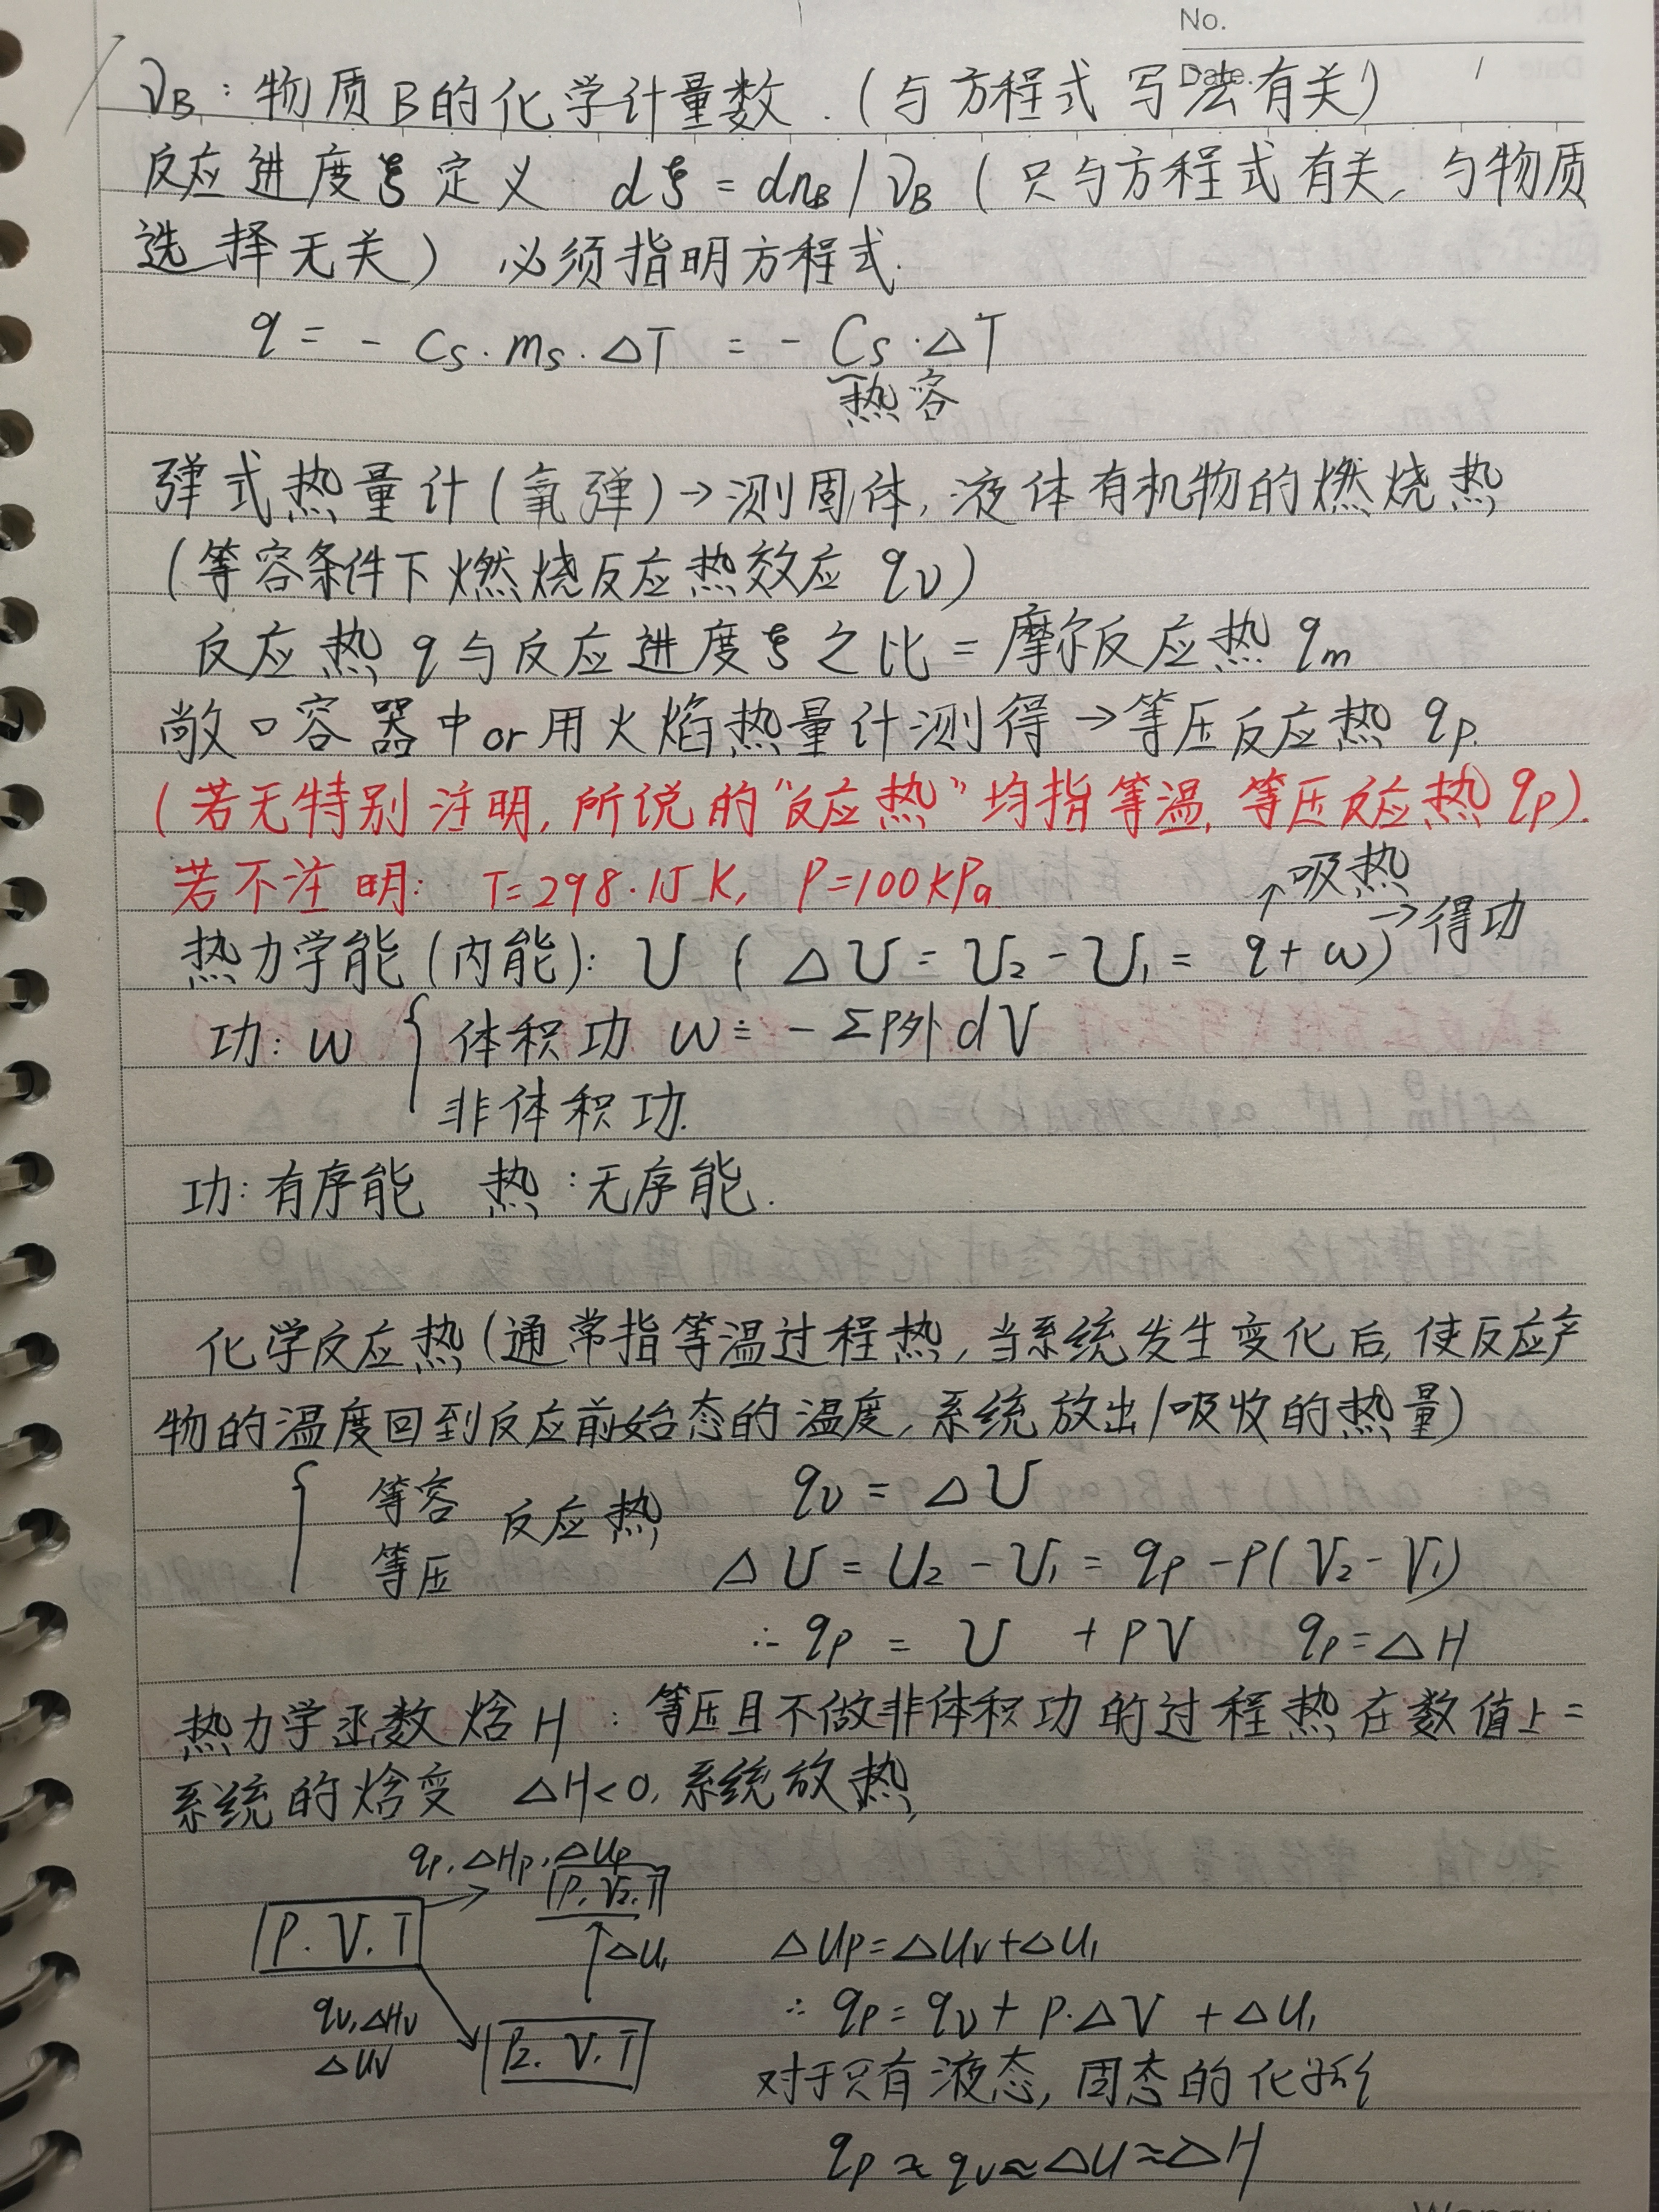 No.
Date.
νB：物质B的化学计量数.（与方程式写法有关）
反应进度ξ定义 dξ = dnB / νB（只与方程式有关，与物质
选择无关） 必须指明方程式.
q = - cs·ms·ΔT = - Cs·ΔT
热容
弹式热量计（氧弹）→测固体，液体有机物的燃烧热
（等容条件下燃烧反应热效应 qv）
反应热q与反应进度ξ之比 = 摩尔反应热 qm
敞口容器中or用火焰热量计测得→等压反应热 qp.
（若无特别注明，所说的“反应热”均指等温，等压反应热qp）.
若不注明： T=298.15K, P=100kPa
↑吸热
热力学能（内能）：U （ΔU = U2 - U1 = q + w）→得功
功：w { 体积功 w = - Σp外dV
非体积功.
功：有序能 热：无序能.
化学反应热（通常指等温过程热，当系统发生变化后，使反应产
物的温度回到反应前始态的温度，系统放出/吸收的热量）
{ 等容 反应热 qv = ΔU
等压 ΔU = U2 - U1 = qp - P(V2 - V1)
∴ qp = U + PV qp = ΔH
热力学函数焓H：等压且不做非体积功的过程热在数值上=
系统的焓变 ΔH<0，系统放热，
qp, ΔHp, ΔUp
P. V2. T
P. V. T
ΔU1
ΔUp = ΔUv + ΔU1
qv, ΔHv
ΔUv
P2. V. T
∴ qp = qv + p·ΔV + ΔU1
对于只有液态，固态的化
qp ≈ qv ≈ ΔU ≈ ΔH